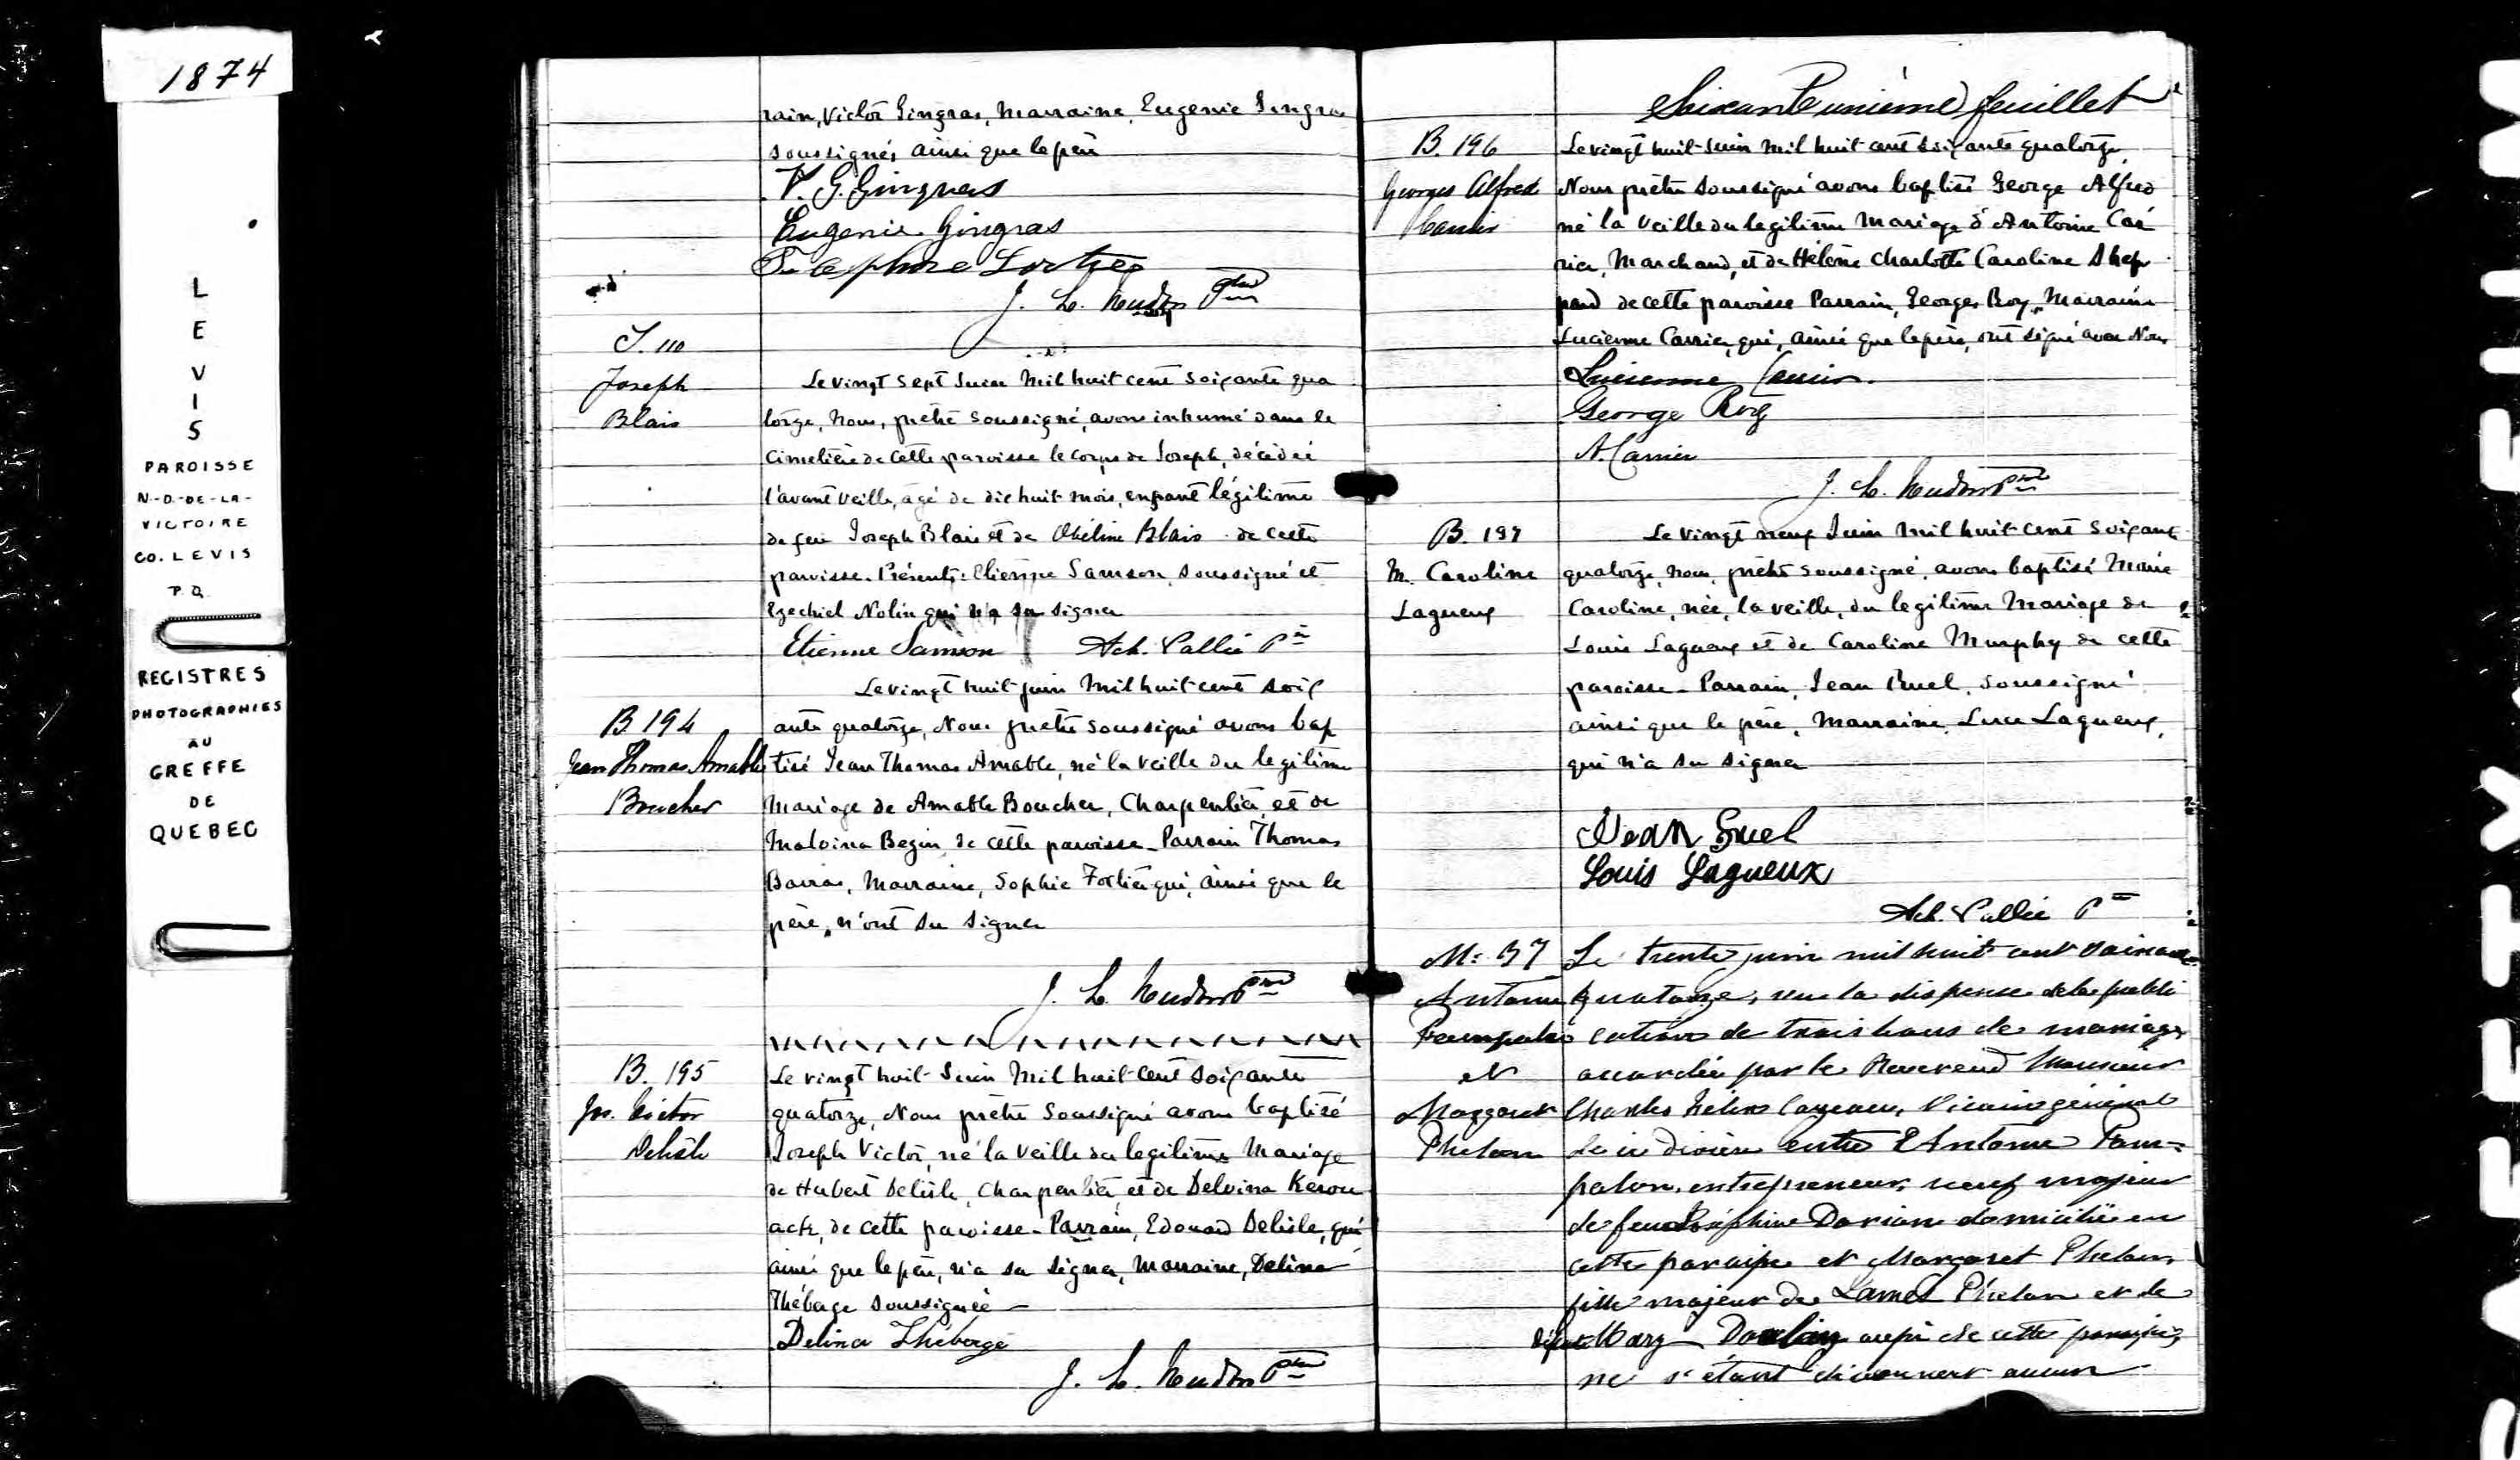 1874
L
E
V
I
S
PAROISSE
N.-D.-DE-LA-
VICTOIRE
CO. LEVIS
P.Q.
REGISTRES
PHOTOGRAPHIES
AU
GREFFE
DE
QUEBEC
rain, Victor Gingras, Marraine, Eugenie Gingras
soussignés ainsi que le père
V. G. Gingras
Eugenie Gingras
Telesphore Lortie
J. L.
S. 110
Joseph
Blais
Le vingt sept Juin Mil huit cent soixante qua
torze, Nous, prêtre soussigné, avons inhumé dans le
Cimetière de Cette paroisse le corps de Joseph, décédé
l'avant veille, agé de dix huit mois, enfant légitime
de feu Joseph Blais et de Obéline Blais de cette
paroisse. Présents: Etienne Samson, soussigné et
Ezechiel Nolin qui n'a su signer
Etienne Samson Ach. Vallée Ptre
B. 194
Jean Thomas Amable
Boucher
Le vingt huit juin Mil huit cent soix
ante quatorze, Nous prêtre soussigné avons bap
tisé Jean Thomas Amable, né la veille du legitime
Mariage de Amable Boucher, Charpentier et de
Malvina Begin de cette paroisse. Parrain Thomas
Barras, Marraine, Sophie Fortier qui, ainsi que le
père, n'ont su signer
J. L.
B. 195
Jos. Victor
Delisle
Le vingt huit Juin Mil huit cent soixante
quatorze, Nous prêtre Soussigné avons baptisé
Joseph Victor, né la veille du legitime Mariage
de Hubert Delisle, Charpentier et de Delvina Kerou
ack, de cette paroisse. Parrain, Edouard Delisle, qui
ainsi que le père, n'a su signer, Marraine, Delina
Théberge soussignée
Delina Théberge
J. L.
Soixante unième feuillet
B. 196
Georges Alfred
Carrier
Le vingt huit Juin Mil huit cent soixante quatorze,
Nous prêtre soussigné avons baptisé George Alfred
né la veille du legitime Mariage d'Antoine Car
rier, Marchand, et de Hélène Charlotte Caroline Shep
pard de cette paroisse Parrain, Georges Roy, Marraine
Lucienne Carrier, qui, ainsi que le père, ont signé avec Nous
Lucienne Carrier.
George Roy
A. Carrier
J. L.
B. 197
M. Caroline
Lagueux
Le vingt neuf Juin Mil huit cent soixante
quatorze, nous, prêtre soussigné, avons baptisé Marie
Caroline, née, la veille, du legitime Mariage de
Louis Lagueux et de Caroline Murphy de cette
paroisse. Parrain, Jean Ruel, soussigné
ainsi que le père, Marraine, Luce Lagueux,
qui n'a su signer
Jean Ruel
Louis Lagueux
Ach. Vallée Ptre
M. 37
Antoine
Pampalon
et
Margaret
Phelan
Le trente juin mil huit cent soixante
quatorze, vu la dispense de la publi
cation de trois bans de mariage
accordée par le Reverend Monsieur
Charles Félix Cazeau, Vicaire général
de ce diocèse entre Antoine Pam=
palon, entrepreneur, veuf majeur
de feue Joséphine Dorion domicilié en
cette paroisse et Margaret Phelan,
fille majeure de James Phelan et de
défunte Mary aussi de cette paroisse,
ne s'étant découvert aucun